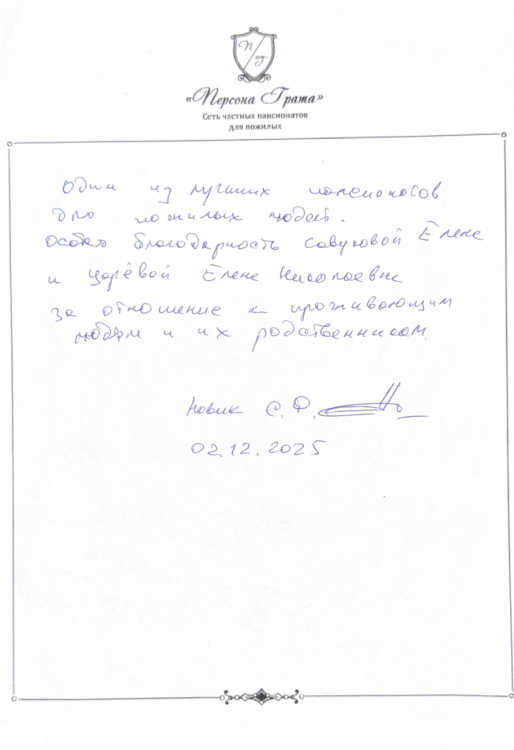 П Г
«Персона Грата»
Сеть частных пансионатов
для пожилых
Один из лучших пансионатов
для пожилых людей.
Особая благодарность Савуковой Елене
и Царёвой Елене Николаевне
за отношение к проживающим
людям и их родственникам.
Новик С. Ф.
02.12.2025